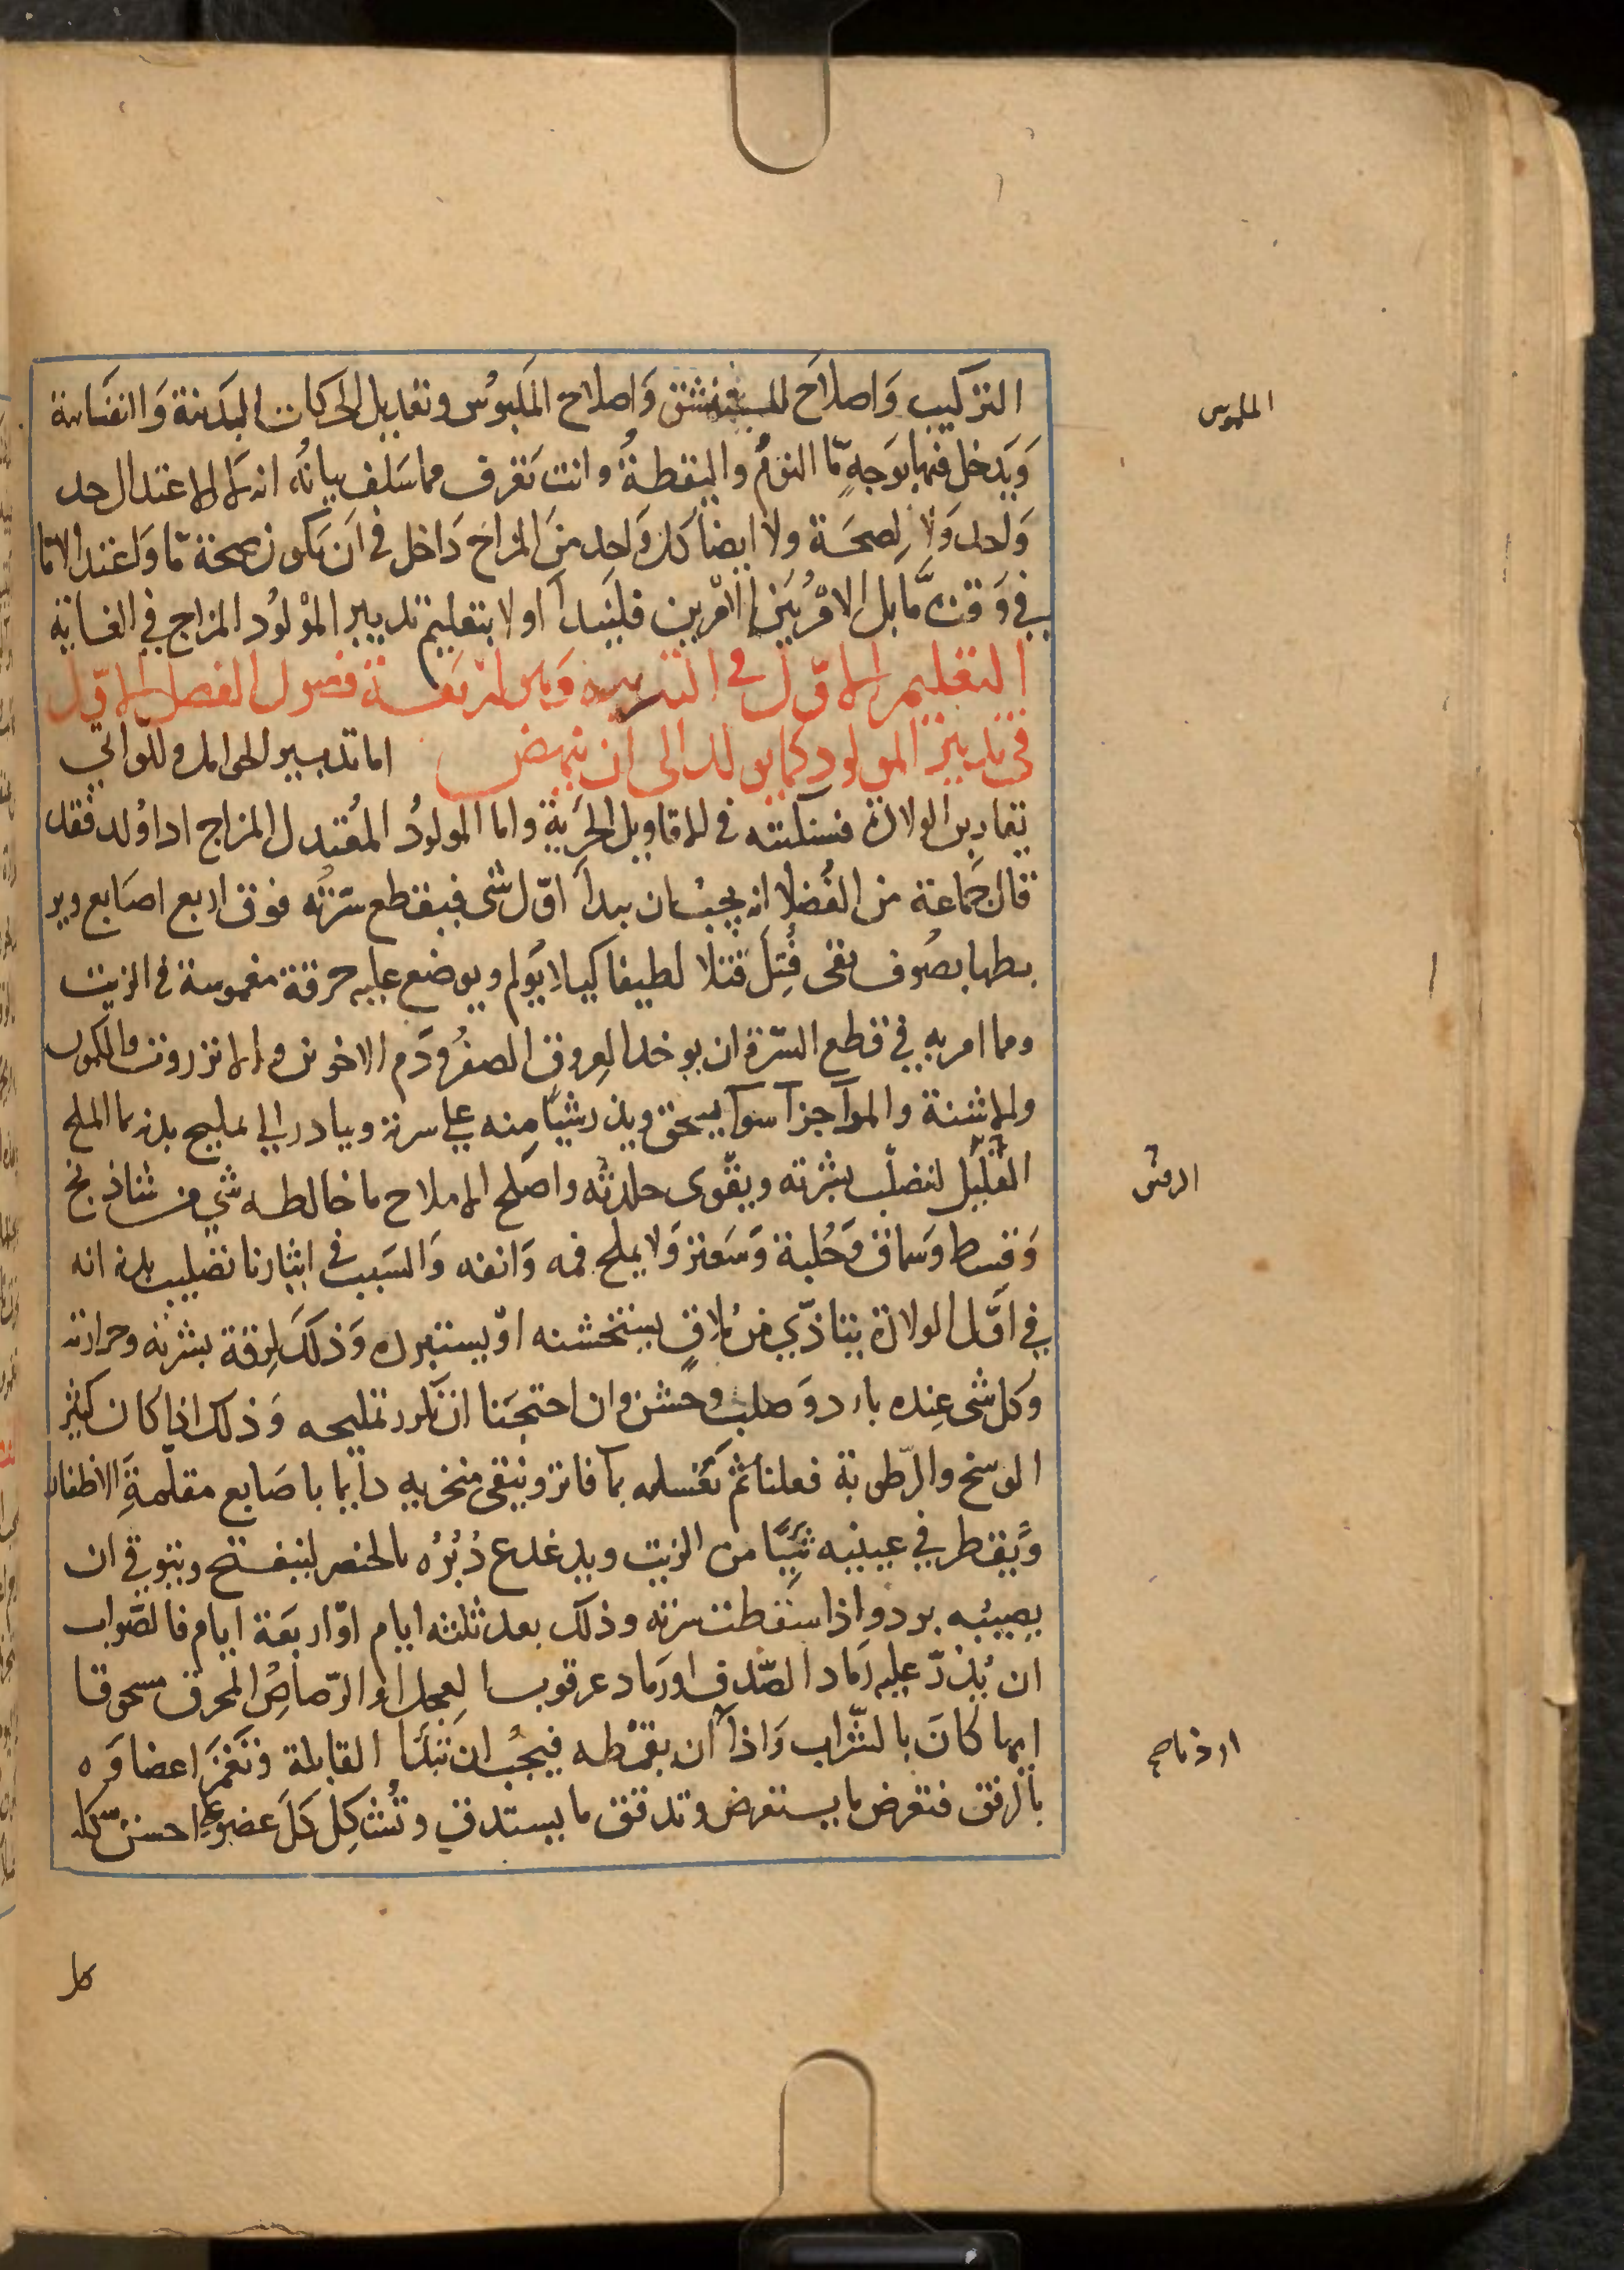 التركيب وَاصلاَح المستنشق وَاصلاح المَلبوُس وتعديل الحركات البَدَنية وَالنفسَانية
وَيَدخل فيها بوَجهٍ مّا النومُ واليقظةُ وانت تعَرف مما سَلف بيانُه انه لا الاعتدال حد
وَاحد وَلا الصحَة ولا ايضاً كل وَاحد منَ المزاج دَاخل في اَن يَكون صحة مّا وَاعتدالا مّا
في وَقت مَّا بل الامْر بَين الامْرين فلنَبدأ اولا بتعليم تدبير الموْلوُد المزاج في الغاية
التعليم الاوّل في التربية وَهو اربَعة فصول الفصل الاوّل
في تدبيرَ المولود كما يولد الى ان ينهض اما تدبير الحوامل واللواتي
يقاربن الولادة فسنكتبه في الاقاويل الجزَيةَ واما المولودُ المعُتدل المزاج اذا وُلد فقد
قال جَماعة من الفُضلا انه يجبُ ان يبدأ اوّل شى فيقطع سرّته فوق اربع اصَابع وير
بطها بصُوف نقى فُتِلَ فتلا لطيفا كيلا يؤلم ويوضع عليه خرقة مغموسة في الزيت
ومما امر به في قطع السّرة ان يوخذ العروق الصفرُ وَدَم الاخوين والانزروت والكمون
والاشنة والمرّ اجزآ سوآ يسحق ويذر شيَا منه على سرته ويبادر الى تمليح بدنه بما الملح
القليل لتصلّب بشرته ويقوّى جلدته واصلح الاملاح ما خالطه شي من شاذنج
وَقسط وَسماق وَحُلبة وَسَعتر وَلا يملح فمه وَانفه وَالسَبب في ايثارنا تصليب بدنه انه
في اوَّل الولادة يتاذّي من مُلاقٍ يستخشنه اوْ يستبرده وَذلكَ لِرقة بشرته وحرارته
وَكل شى عِنده بارد وَ صلب وخشن وان احتجنَا ان نكرر تمليحه وَذلك اذا كان كثير
الوسخ والرّطوبة فعلنا ثم نَغسله بمآ فاتر وننقى منخريه دآيما باصَابع مقلّمةِ الاظفار
وَيقطر في عينيه شيَئًا من الزيت ويدغدغ دُبُرُه بالخنصر لينفتح ويتوقى ان
يصيبُه برد واذا سقطت سرته وذلك بعد ثلثة ايام اوّ اربَعة ايام فالصّواب
ان يُذرّ عليه رَماد الصّدف اورَماد عرقوب العجل او الرّصَاصُ المحرق مسحوقا
ايها كانَ بالشّراب وَاذا آن يقمّطه فيجبُ ان تبدَأ القابلة وَتغمَزَ اعضاوَه
بالرفق فتعرض ما يستعرض وتدقق ما يستدق وتُشكِل كَل عضو على احسن شكله
كل
الملبوس
الرقىق